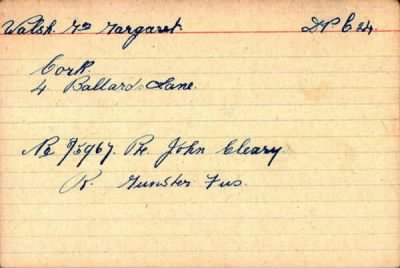 Walsh Mrs Margaret D.P. 6.24.
Cork.
4 Ballards Lane.
No 9/5967. Pte. John Cleary.
R. Munster Fus.